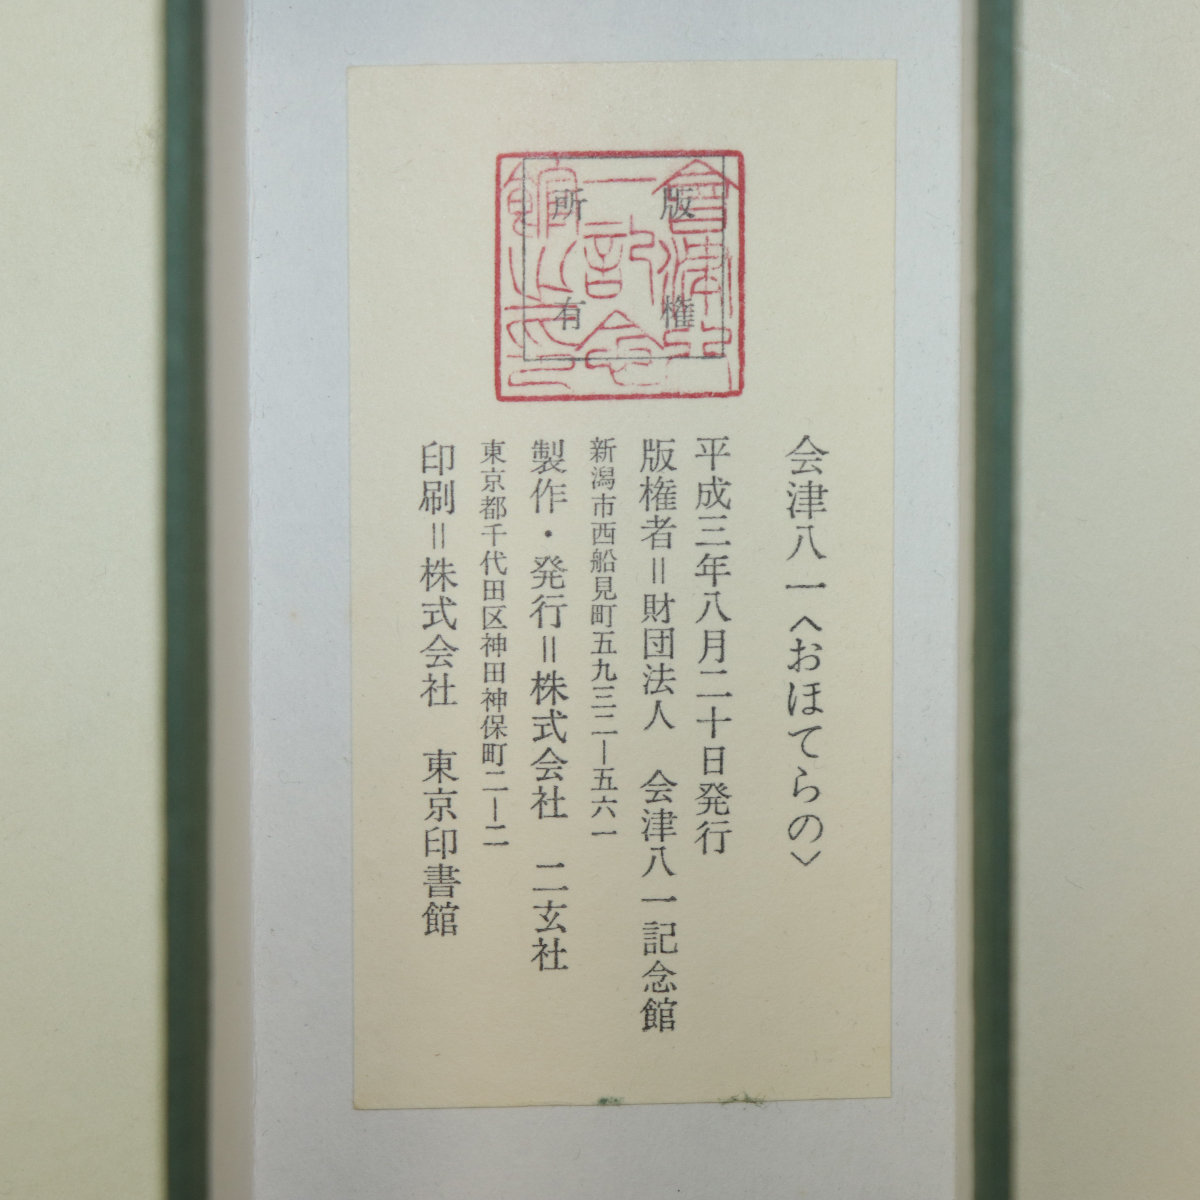 版権
所有
會津八
一記念
館之印
会津八一〈おほてらの〉
平成三年八月二十日発行
版権者＝財団法人　会津八一記念館
新潟市西船見町五九三二－五六一
製作・発行＝株式会社　二玄社
東京都千代田区神田神保町二－二
印刷＝株式会社　東京印書館